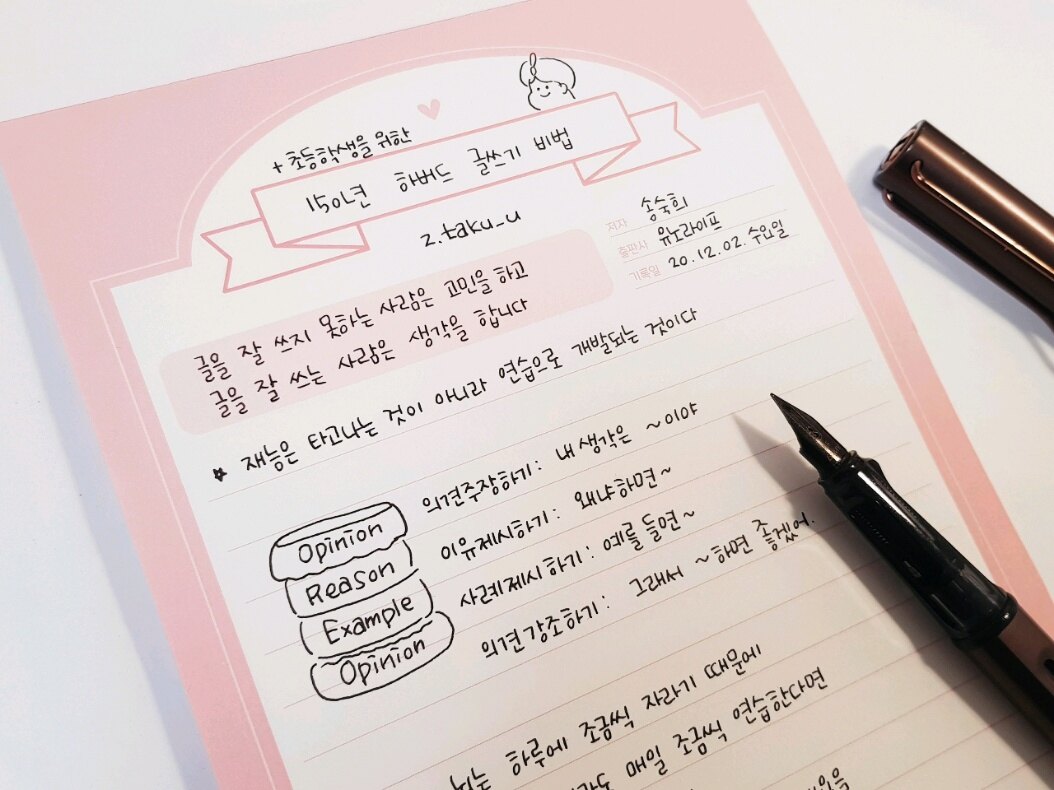 + 초등학생을 위한
150년 하버드 글쓰기 비법
z.taku_u
저자 송숙희
출판사 유노라이프
기록일 20.12.02. 수요일
글을 잘 쓰지 못하는 사람은 고민을 하고
글을 잘 쓰는 사람은 생각을 합니다
재능은 타고나는 것이 아니라 연습으로 개발되는 것이다
Opinion 의견주장하기: 내 생각은 ~이야
Reason 이유제시하기: 왜냐하면~
Example 사례제시하기: 예를 들면~
Opinion 의견강조하기: 그래서 ~하면 좋겠어.
뇌는 하루에 조금씩 자라기 때문에
매일 조금씩 연습한다면